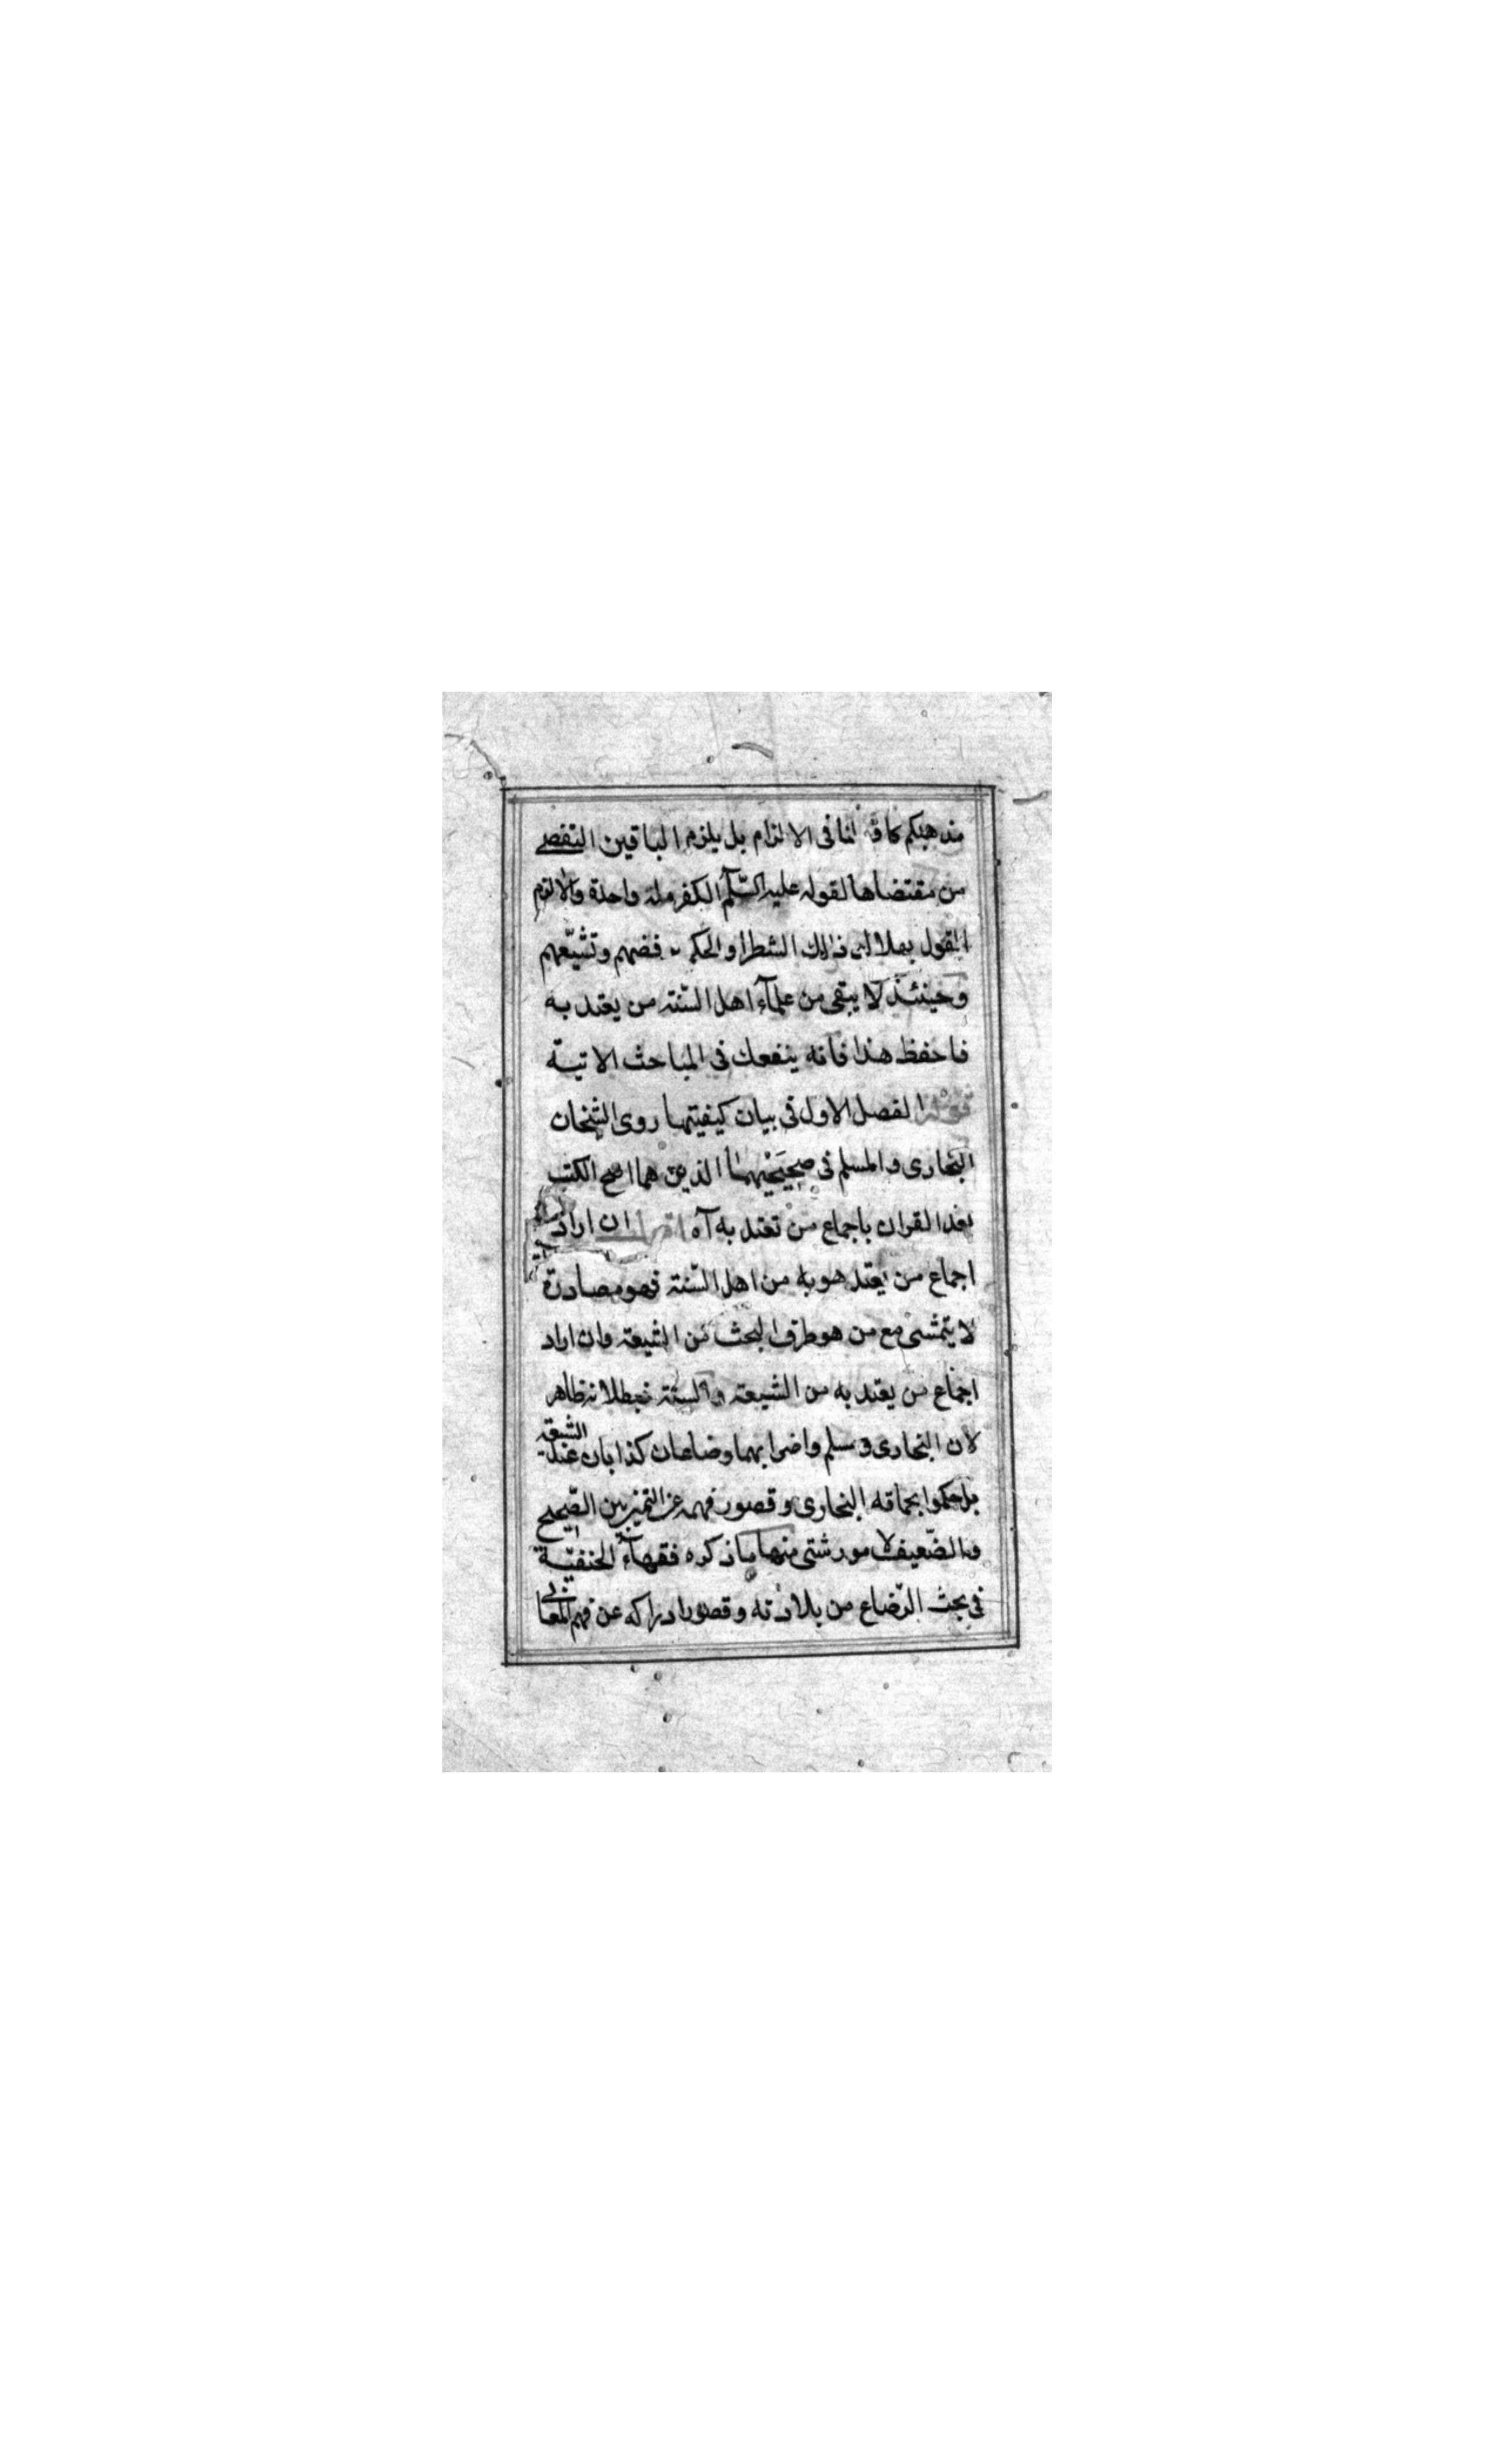 مذهبكم كافٍ لنا فى الالزام بل يلزم الباقين التفصى
من مقتضاها لقوله عليه السّلم الكفر ملة واحدة والالزم
القول بضلال ذلك الشطر او الحكم فضهم وتشيّعهم
وحينئذ لا يبقى من علمآء اهل السّنة من يعتد به
فاحفظ هذا فانه ينفعك فى المباحث الاتية
قوله الفصل الاول فى بيان كيفيتها روى الشيخان
البخارى والمسلم فى صحيحيهما الذين هما اصح الكتب
بعد القران باجماع من تعتد به آه اقول ان اراد
اجماع من يعتد هو به من اهل السّنة فهو مصادرة
لا يتمشى مع من هو طرف البحث من الشيعة وان اراد
اجماع من يعتد به من الشيعة والسنة فبطلانه ظاهر
لان البخارى و مسلم واضرابهما وضاعان كذابان عند الشيعة
بل حكموا بحماقه البخارى و قصور فهمه عن التميز بين الصّحيح
والضّعيف لامور شتى منها ما ذكره فقهآء الحنفيّة
فى بحث الرّضاع من بلادته و قصور ادراكه عن فهم المعانى